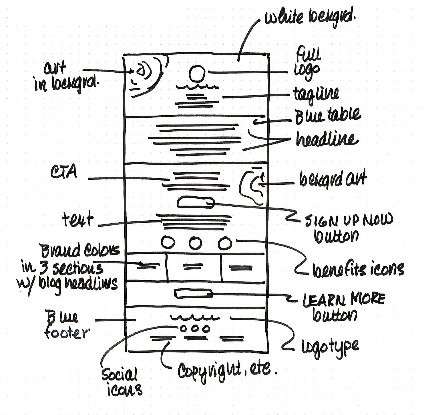 white backgrd.
art
in backgrd.
full
logo
tagline
Blue table
headline
CTA
backgrd art
text
SIGN UP NOW
button
Brand Colors
in 3 sections
w/ blog headlines
benefits icons
LEARN MORE
button
Blue
footer
logotype
Social
icons
Copyright, etc.